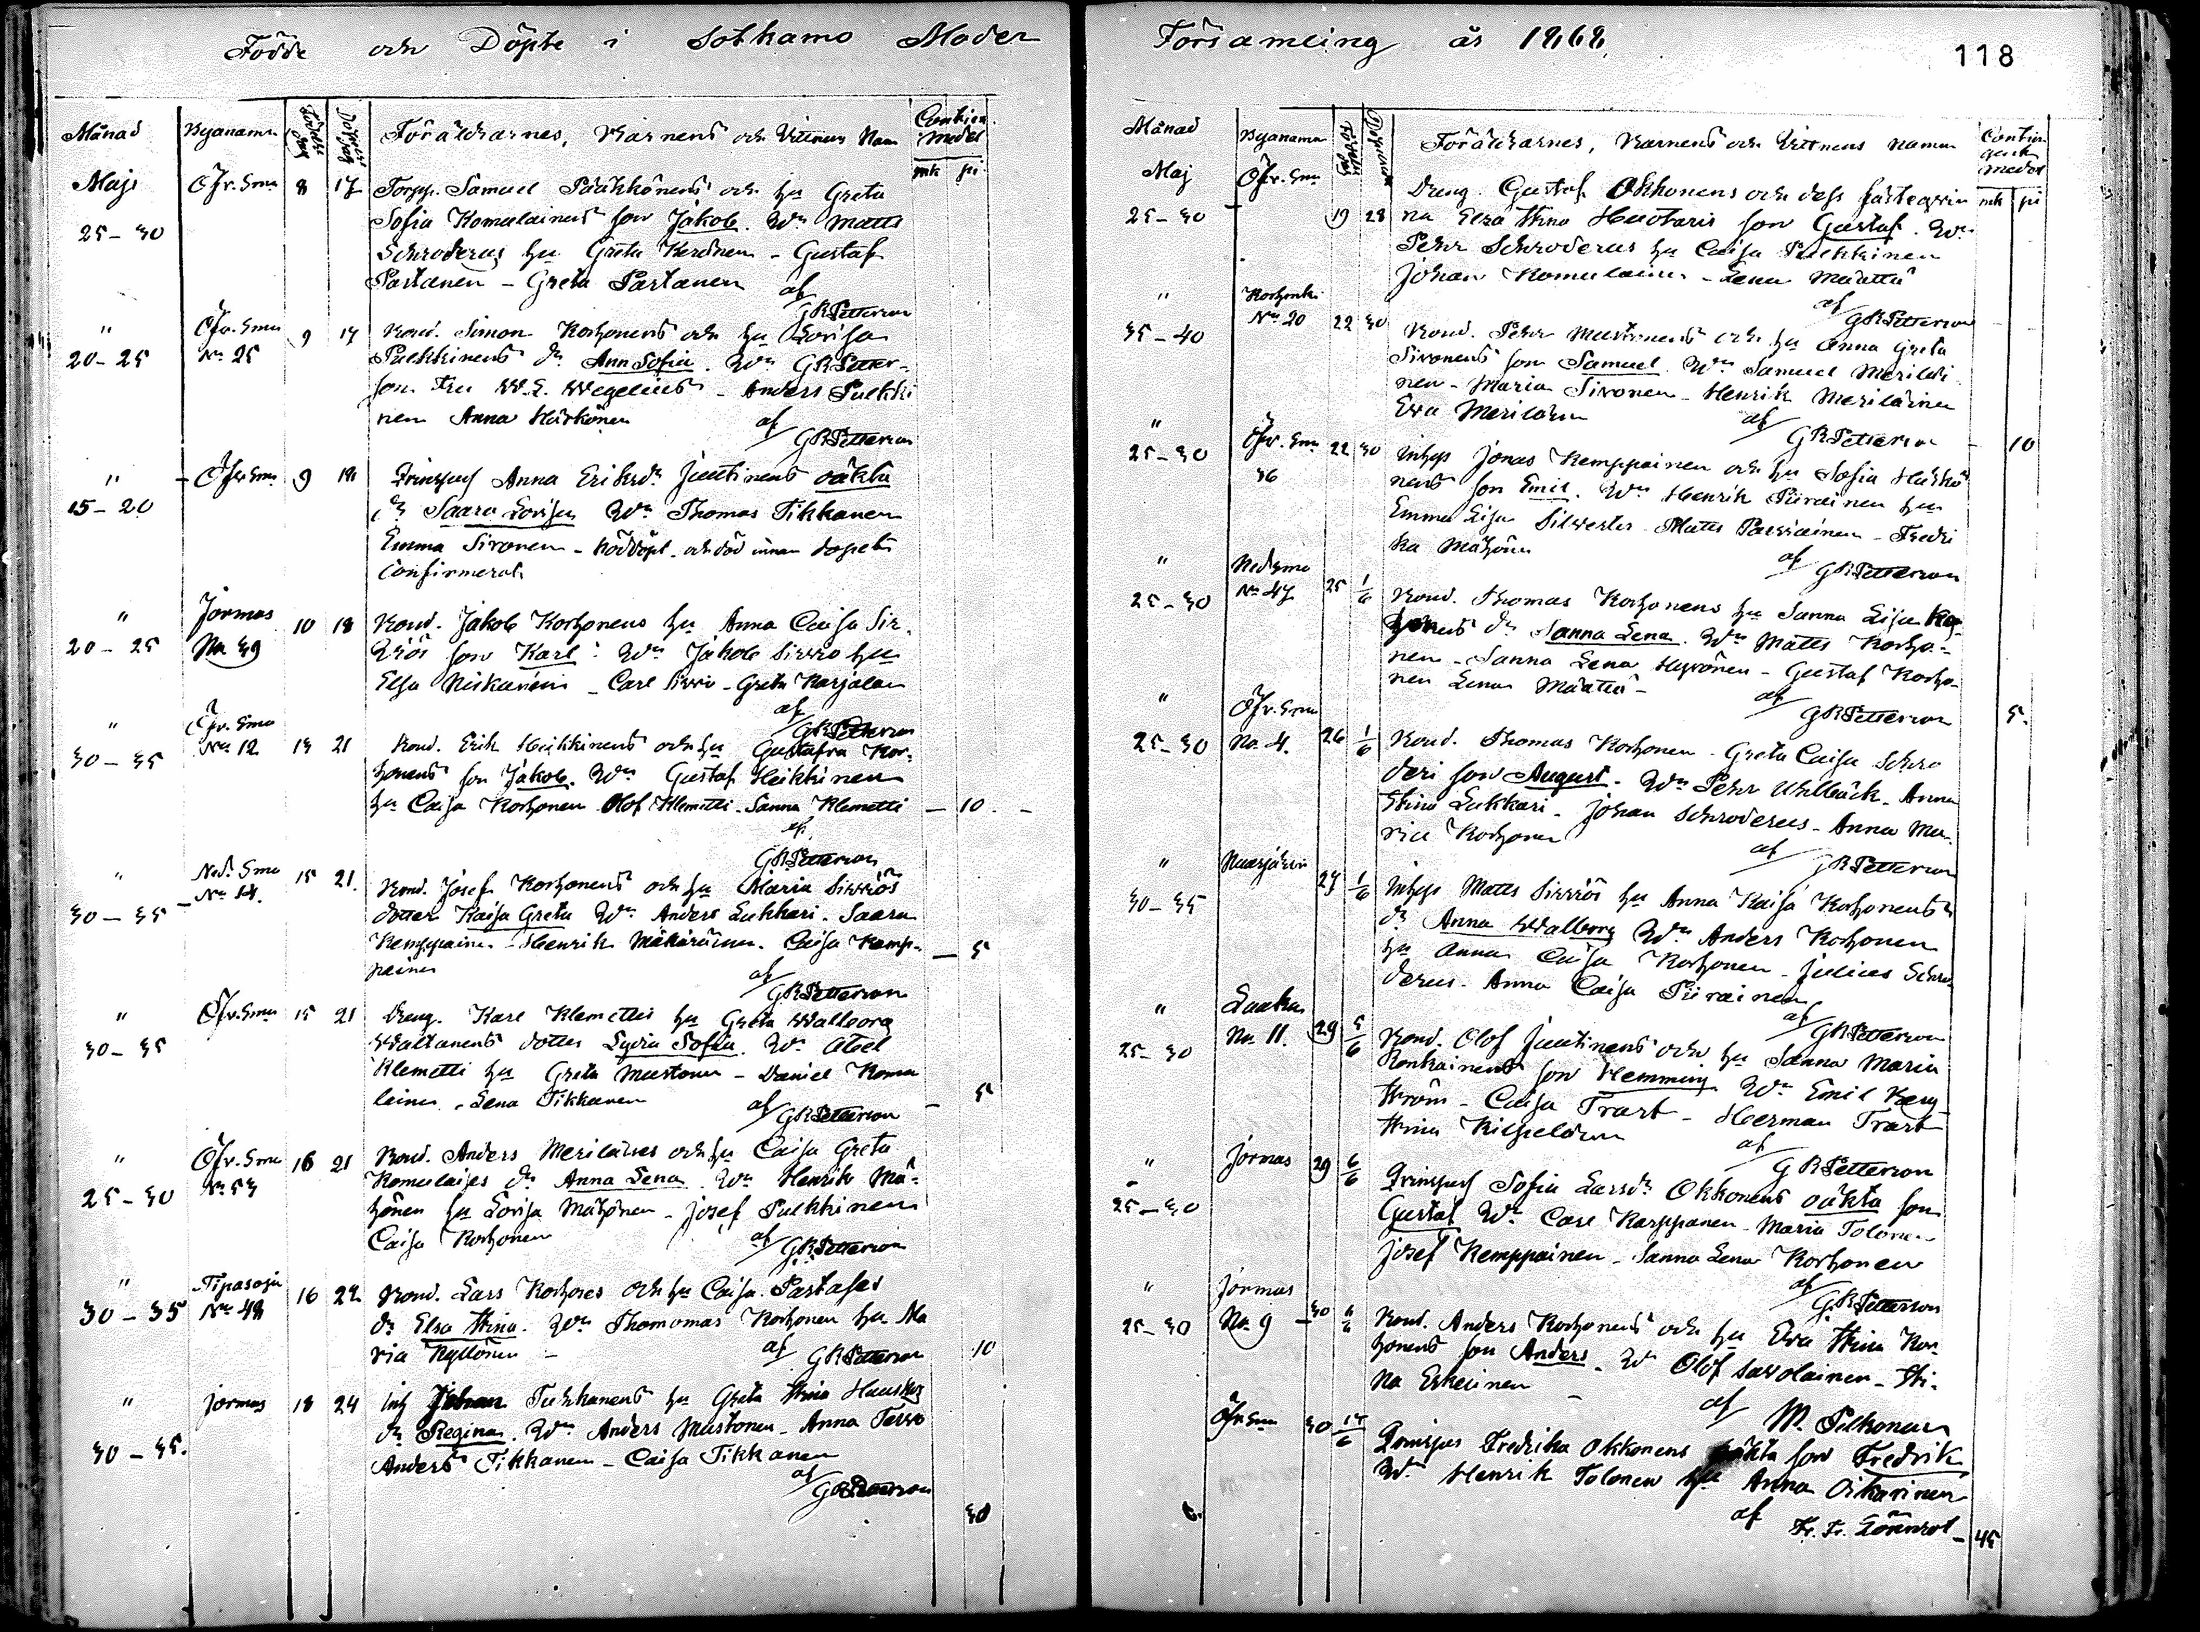 Födde och Döpte i Sotkamo Moder
Månad Byanamn Födelse dag Döpelse dag Föräldrarnes, Barnens och Vittnens Namn
mk pi
Maji Öfr. Smo 8 17 Torpp. Samuel Pääkkönens och hu Greta
25–30 Sofia Komulainens son Jakob. Wn Matts
Schroderus hu Greta Keränen – Gustaf
Partanen – Greta Partanen af
GRPetterson
" Öfr. Smo 9 17 Bond. Simon Korhonens och hu Lovisa
20–25 No 25 Pulkkinens dr Ann Sofia. Wn GRPetter-
son fru W. E. Wegelius – Anders Pulkki
nen Anna Härkönen af
GRPetterson
" Öfr Smo 9 18 Qvinspers Anna Eriksdr Juntinens oäkta
15–20 dr Saara Lovisa Wn Thomas Tikkanen
Emma Sivonen – nöddöpt och död innan dopets
Confirmerat.
" Jormas 10 18 Bond. Jakob Korhonens hu Anna Caisa Sir-
20–25 No 39 viös son Karl. Wn Jakob Sirviö hu
Elsa Niskanen – Carl Sirviö – Greta Karjalan
af
GRPetterson
" Öfr. Smo
30–35 No 12 13 21 Bond. Erik Heikkinens och hu Gustafva Kor-
honens son Jakob. Wn Gustaf Heikkinen
hu Caisa Korhonen Olof Klemetti – Sanna Klemetti – 10 –
af
GRPetterson
" Ned. Smo 15 21.
30–35 No 14. Bond. Josef Korhonens och hu Maria Sirviös
dotter Kaisa Greta Wn Anders Lukkari – Saara
Kemppainen – Henrik Mäkäräinen – Caisa Kemp-
painen – 5
af
GRPetterson
" Öfr. Smo 15 21 Dreng. Karl Klemettis hu Greta Walborg
30–35 Waltanens dotter Lydia Sofia. Wn Abel
Klemetti hu Greta Mustonen – Daniel Komu
lainen – Lena Tikkanen – 5
af
GRPetterson
" Öfr. Smo 16 21 Bond. Anders Meriläines och hu Caisa Greta
25–30 No 53 Komulaises dr Anna Lena Wn Henrik Mä-
hönen hu Lovisa Mähönen – Josef Pulkkinen
Caisa Korhonen af
GRPetterson
" Tipasoja 16 22 Bond. Lars Korhoses och hu Caisa Partases
30–35 No 48 dr Elsa Stina. Wn Thomomas Korhonen hu Ma
ria Kyllönen – af GRPetterson 10
" Jormas 18 24 Inh Johan Tuhkanens hu Greta Stina
30–35. dr Regina. Wn Anders Mustonen – Anna Tervo
Anders Tikkanen – Caisa Tikkanen
af
GRPetterson
30
Församling år 1868. 118
Månad Byanamn Föräldrarnes, Barnens och Vittnens namn
mk pi
Maj Öfr. Smo Dreng. Gustaf Okkonens och dess fästeqvin
25–30 19 28 na Elsa Stina Huotaris son Gustaf. Wn
Pehr Schroderus hu Caisa Pulkkinen
Johan Komulainen – Lena Määttä
af
GRPetterson
" Korhonki
35–40 No 20 22 30 Bond. Pehr Mustonens och hu Anna Greta
Sivonens son Samuel. Wn Samuel Meriläi
nen – Maria Sivonen – Henrik Meriläinen
Eva Meriläinen af
GRPetterson – 10
" Öfr. Smo 22 30 Inhys Jonas Kemppainen och hu Sofia Härkö
25–30 36 nens son Emil. Wn Henrik Piirainen hu
Emma Lisa Silvester – Matts Parviainen – Fredri
ka Mähönen
af
GRPetterson
" Ned Smo
25–30 No 47 25 1/6 Bond. Thomas Korhonens hu Sanna Lisa Kor-
honens dr Sanna Lena. Wn Matts Korho-
nen – Sanna Lena Hyvönen – Gustaf Korho-
nen Lena Määttä –
af
GRPetterson 5.
" Öfr. Smo
25–30 No. 4. 26 1/6 Bond. Thomas Korhonen – Greta Caisa Schro
deri son August. Wn Pehr Uhlbäck – Anna
Stina Lukkari – Johan Schroderus – Anna Ma-
ria Korhonen af
GRPetterson
" Nuasjärvi
30–35 27 1/6 Inhys Matts Sirviös hu Anna Kaisa Korhonens
dr Anna Walborg Wn Anders Korhonen
hu Anna Caisa Korhonen – Julius Schro
derus – Anna Caisa Piirainen
af
GRPetterson
" Laaka
25–30 No. 11. 29 5/6 Bond. Olof Juntinens och hu Sanna Maria
Ronkainens son Hemming Wn Emil Berg
ström – Caisa Trast – Herman Trast
Stina Kilpeläinen
af
GRPetterson
" Jormas 29 6/6 Qvinspers Sofia Larsdr Okkonens oäkta son
25–30 Gustaf Wn Carl Karppanen – Maria Tolonen
Josef Kemppainen – Sanna Lena Korhonen
af
GRPetterson
" Jormas
25–30 No. 9 30 6/6 Bond. Anders Korhonens och hu Eva Stina Kor-
honens son Anders. Wn Olof Savolainen – Sti-
na Eskelinen –
af
M. Pulkonen
Öfr. Smo 30 14/6 Qvinspers Fredrika Okkonens oäkta son Fredrik
Wn Henrik Tolonen hu Anna Oikarinen
af
Fr. Fr. Lönnrot – 45